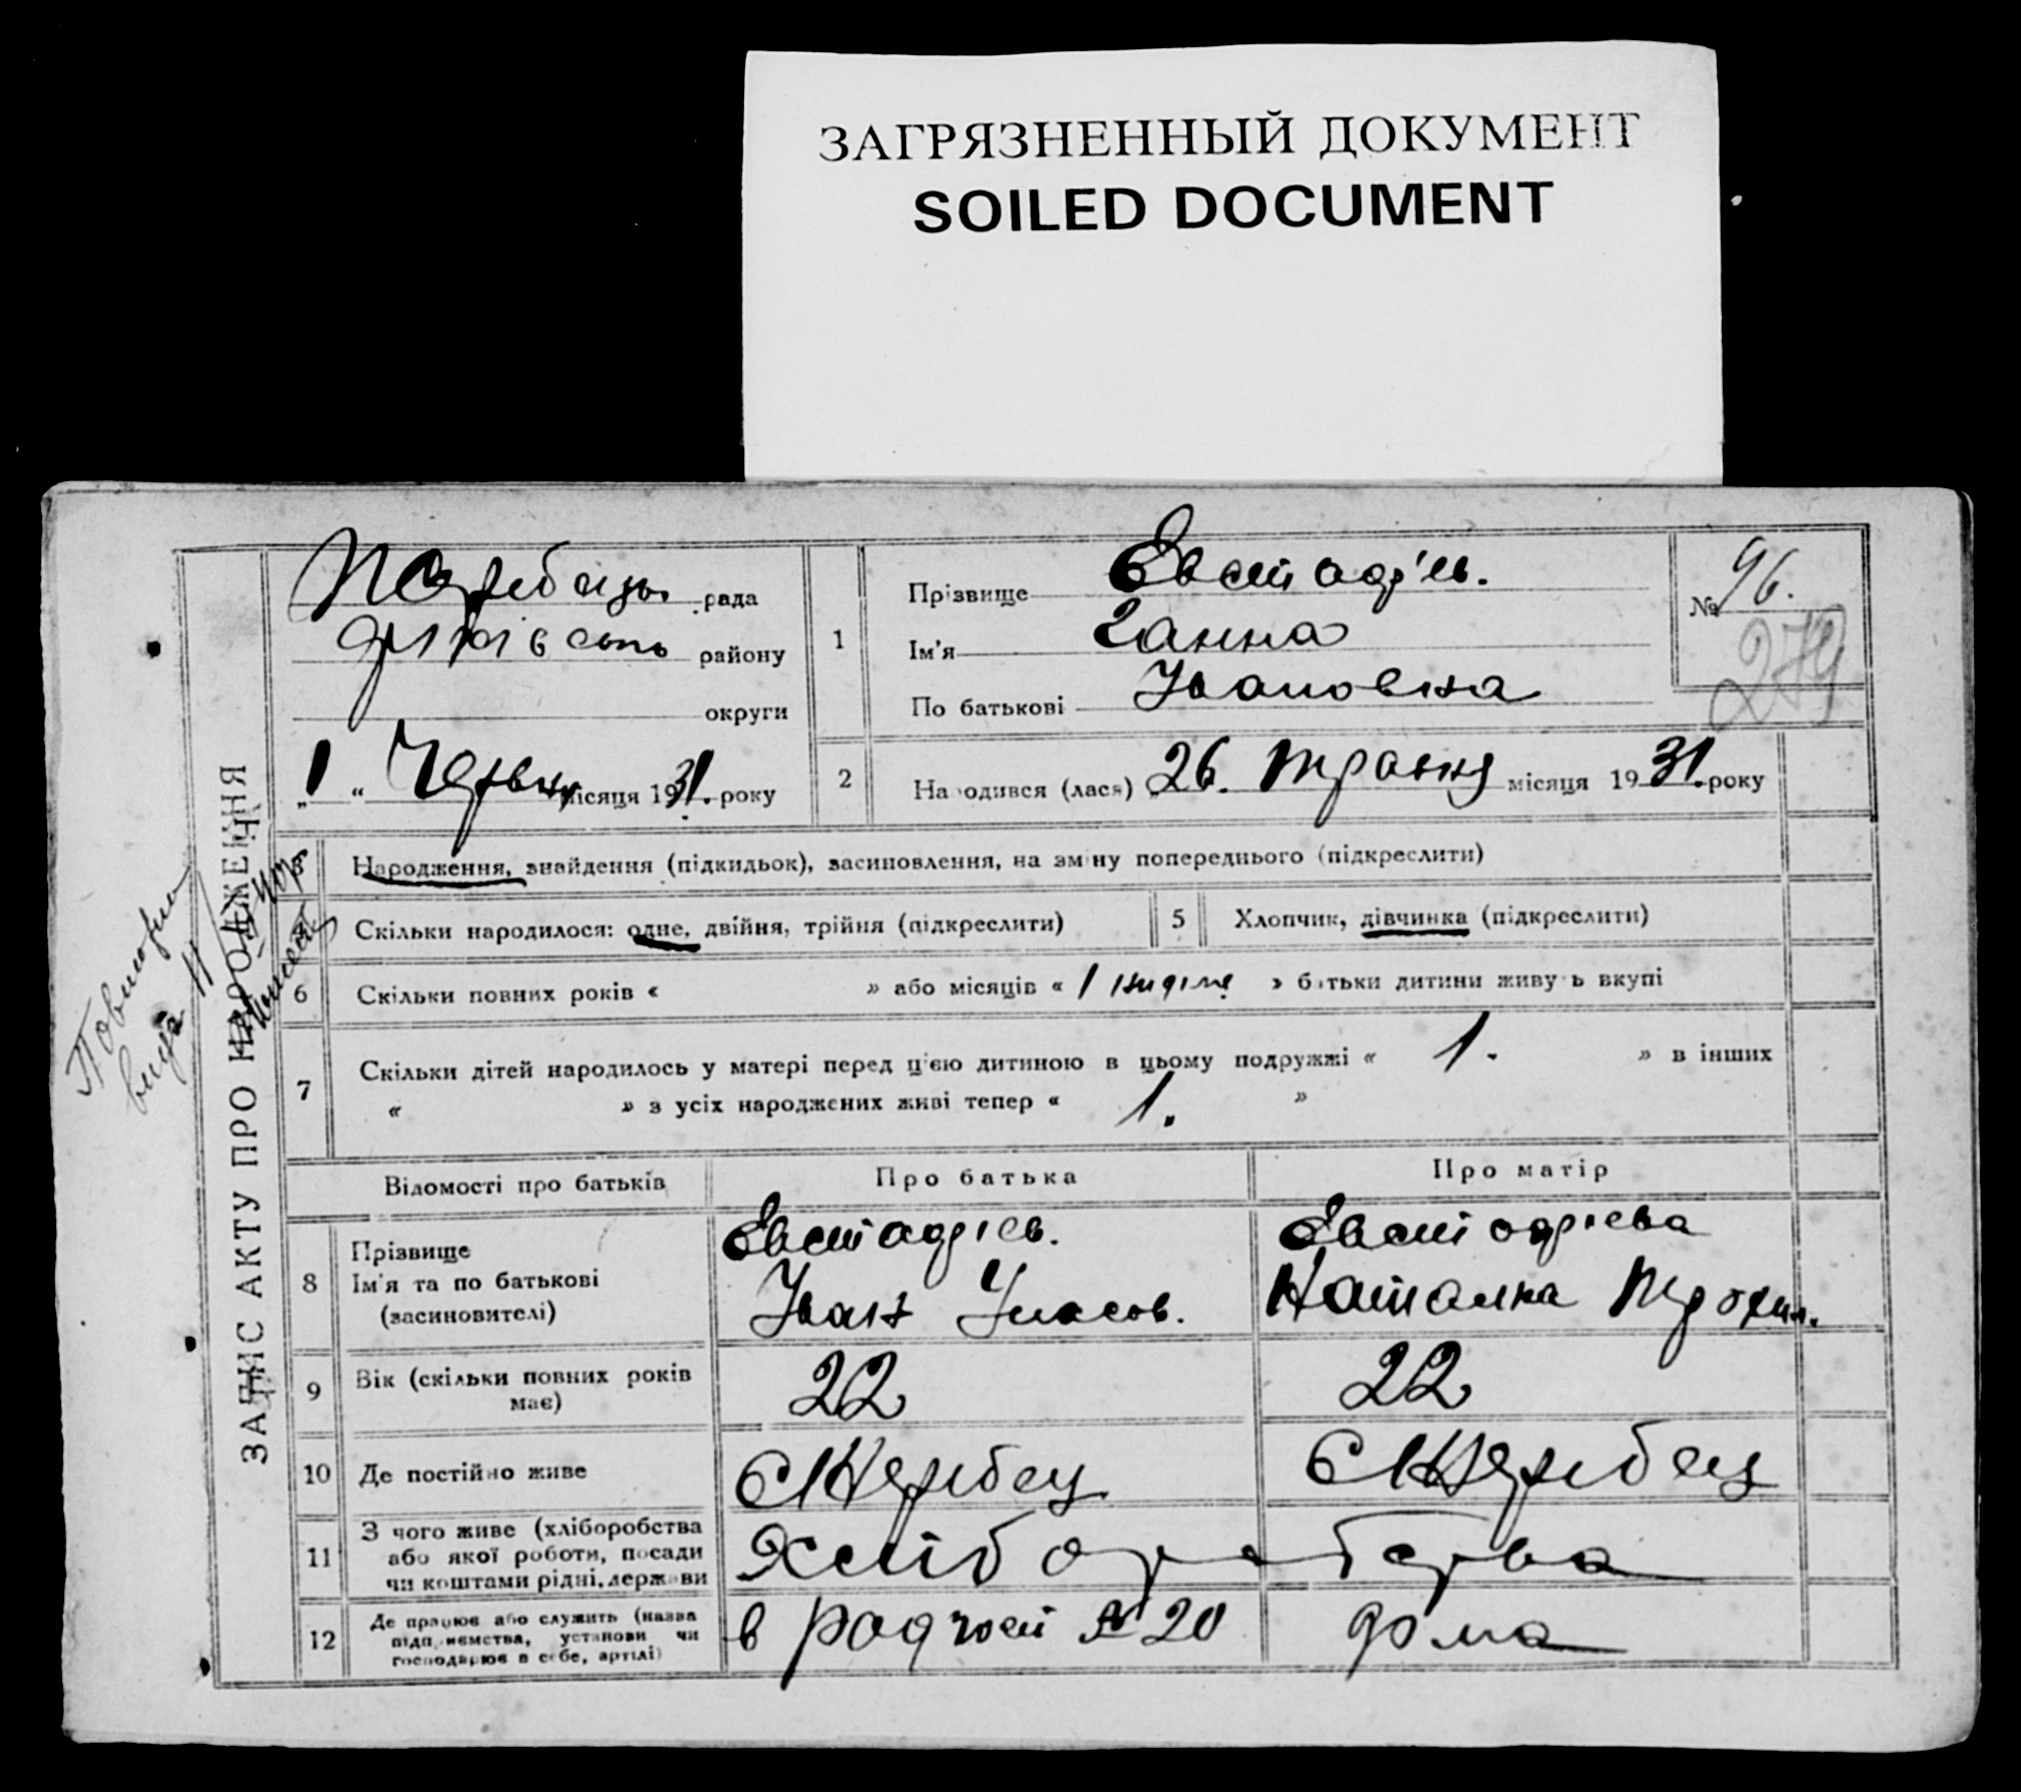 ЗАГРЯЗНЕННЫЙ ДОКУМЕНТ
SOILED DOCUMENT
ЗАПИС АКТУ ПРО НАРОДЖЕННЯ
рада
району
округи
„1“ Червня місяця 1931. року
1
Прізвище
Ім'я Ганна
По батькові Ивановна
№ 96.
279
2
Народився (лася) 26. травня місяця 1931. року
3
Народження, знайдення (підкидьок), засиновлення, на зміну попереднього (підкреслити)
Скільки народилося: одне, двійня, трійня (підкреслити)
5
Хлопчик, дівчинка (підкреслити)
6
Скільки повних років « » або місяців « 1 » батьки дитини живуть вкупі
7
Скільки дітей народилось у матері перед цією дитиною в цьому подружжі « 1. » в інших
« » з усіх народжених живі тепер « 1. »
Відомості про батьків
Про батька
Про матір
8
Прізвище
Ім'я та по батькові
(засиновителі)
Евстадіев.
Иван
Евстадіева
Наталка Трохим.
9
Вік (скільки повних років
має)
22
22
10
Де постійно живе
11
З чого живе (хліборобства
або якої роботи, посади
чи коштами рідні, держави
Хліборобства
12
Де працює або служить (назва
підприємства, установи чи
господарює в себе, артілі)
в радгосп № 20
дома